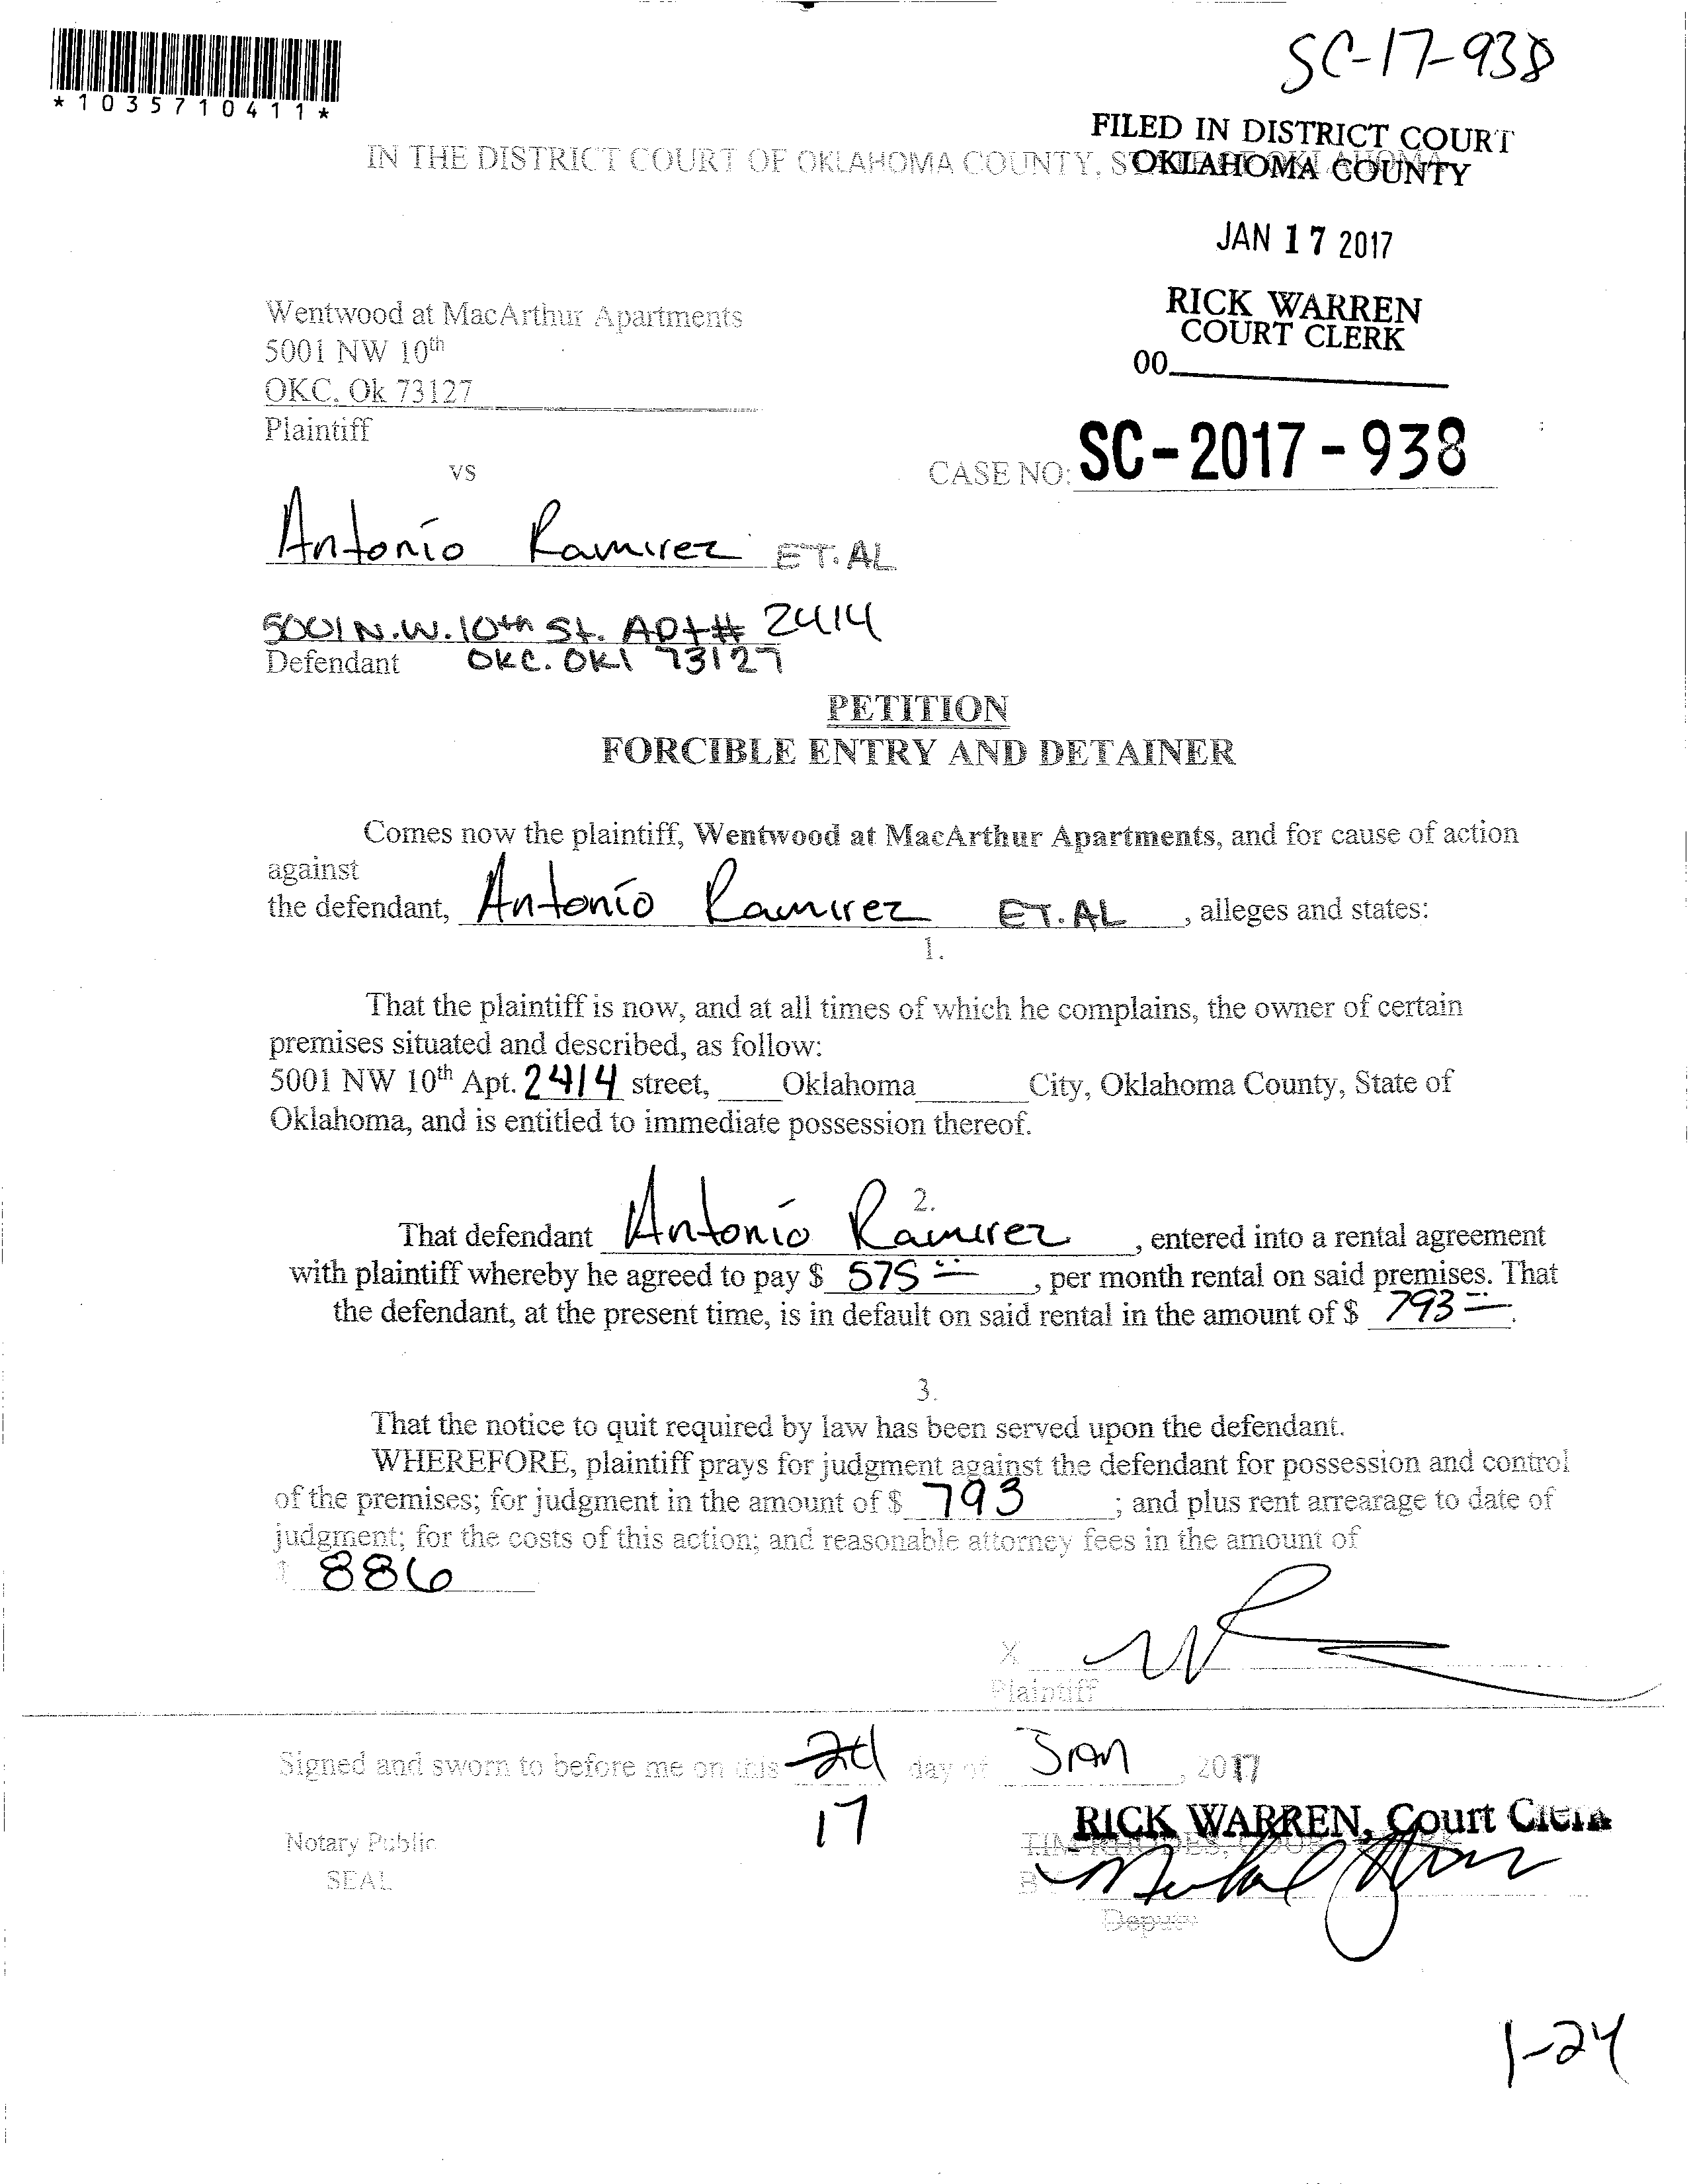 SC-17-938
*1035710411*
FILED IN DISTRICT COURT
OKLAHOMA COUNTY
IN THE DISTRICT COURT OF OKLAHOMA COUNTY,
JAN 17 2017
RICK WARREN
COURT CLERK
00
Wentwood at MacArthur Apartments
5001 NW 10th
OKC. Ok 73127
Plaintiff
vs
CASE NO: SC-2017-938
Antonio Ramirez ET.AL
5001 N.W. 10th St. Apt# 2414
Defendant OKC. OKl 73127
PETITION
FORCIBLE ENTRY AND DETAINER
Comes now the plaintiff, Wentwood at MacArthur Apartments, and for cause of action
against
the defendant, Antonio Ramirez ET.AL, alleges and states:
1.
That the plaintiff is now, and at all times of which he complains, the owner of certain
premises situated and described, as follow:
5001 NW 10th Apt. 2414 street, Oklahoma City, Oklahoma County, State of
Oklahoma, and is entitled to immediate possession thereof.
2.
That defendant Antonio Ramirez, entered into a rental agreement
with plaintiff whereby he agreed to pay $ 575, per month rental on said premises. That
the defendant, at the present time, is in default on said rental in the amount of $ 793.
3.
That the notice to quit required by law has been served upon the defendant.
WHEREFORE, plaintiff prays for judgment against the defendant for possession and control
of the premises; for judgment in the amount of $ 793; and plus rent arrearage to date of
judgment; for the costs of this action; and reasonable attorney fees in the amount of
$ 886
X
Plaintiff
Signed and sworn to before me on this 24 day of JAN, 2017
17
RICK WARREN, Court Clerk
Notary Public
TIM RHODES, COURT CLERK
SEAL
BY
Deputy
1-24